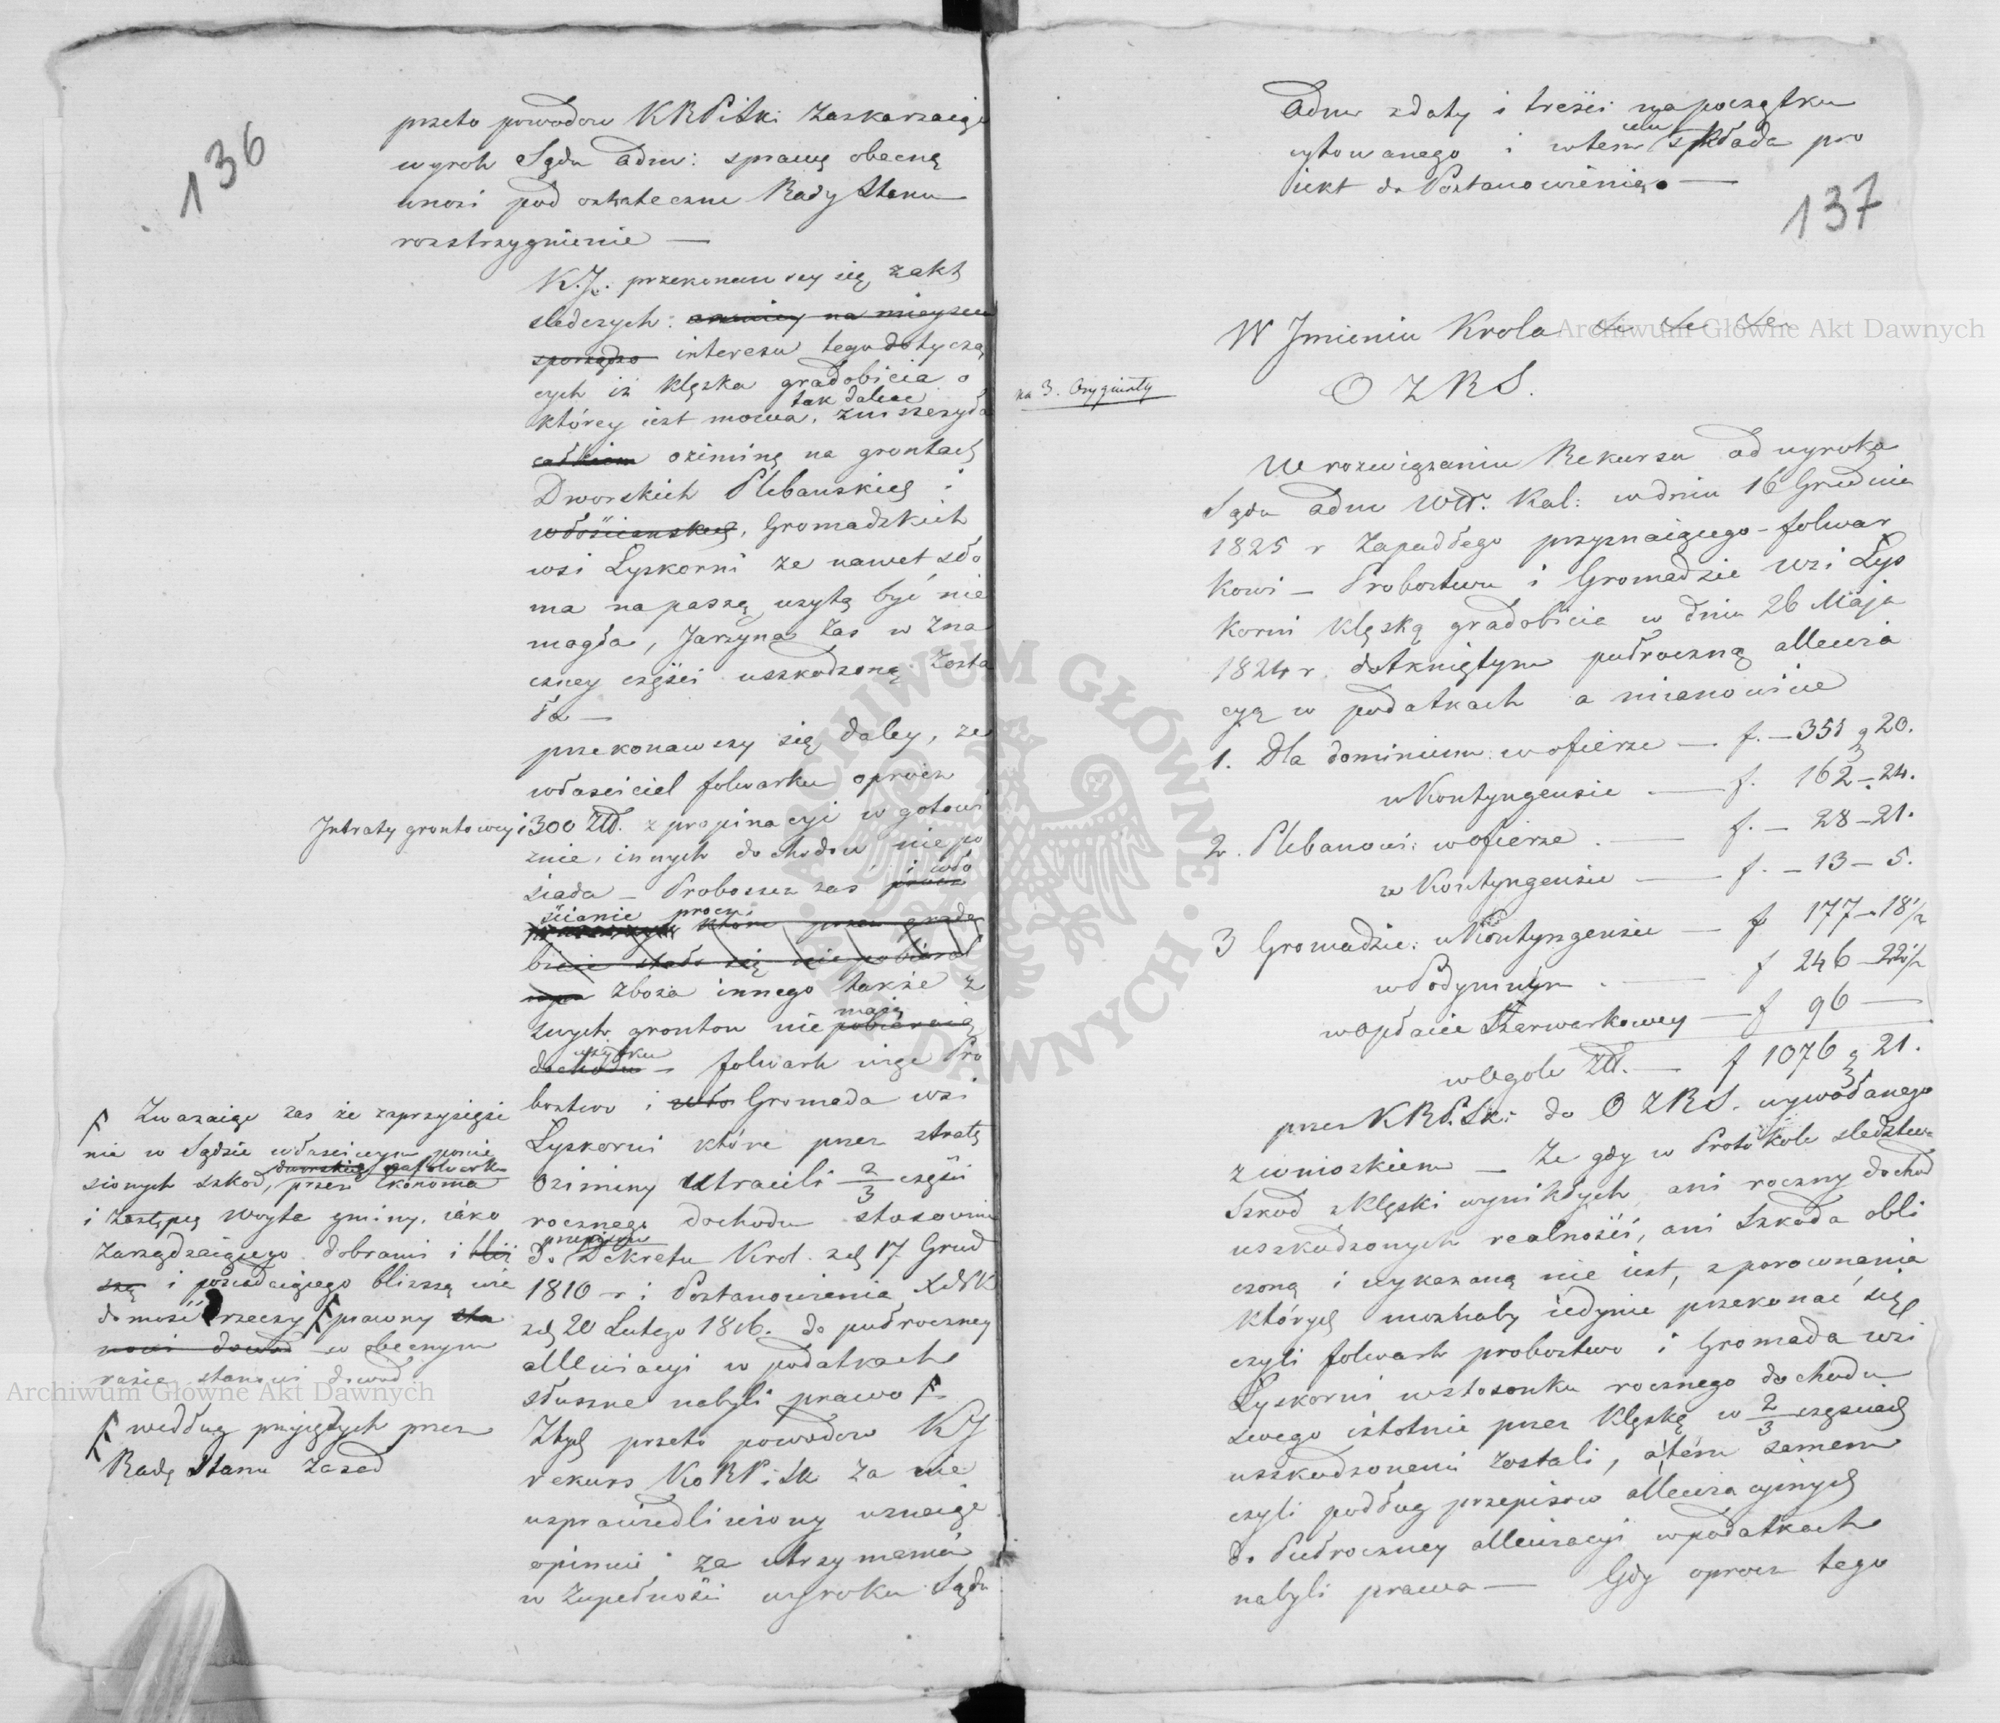 136
przeto powodow KRPiSk: zaskarzaiąc
wyrok Sądu Adm: sprawę obecną
wnosi pod ostateczne Rady Stanu
rozstrzygnienie —
K.J. przekonawszy się z akt
sledczych: na mieyscu
interesu tego dotyczą
cych iż klęska gradobicia o
którey iest mowa, tak dalece zniszczyła
całkiem oziminę na grontach
Dworskich Plebanskich i
włościanskich, Gromadzkich
wsi Lyskorni ze nawet sło
ma na paszą użytą być nie
mogła, Jarzyna zas w zna
czney części uszkodzoną zosta
ła —
przekonawszy się daley, ze
własciciel folwarku oprócz
Intraty grontowey i 300 Złł. z propinacyi w gotowi
znie, innych dochodów niepo
siada — Proboszcz zas i wło
ścianie procz
które przez grado
bicie stało się nie pobierał
zboża innego także z
swych grontow nie maią pobieraią
użytku dochodu — folwark więc Pro
bostwo i Gromada wsi
Lyskorni które przez stratę
oziminy utracili 2/3 części
rocznego dochodu stosownie
do przepisow Dekretu Krol. z d. 17 Grud
1810 r i Postanowienia XcNK
z d. 20 Lutego 1816. do pułroczney
allewiacyi w podatkach
słuszne nabyli prawo
Ztych przeto powodow KJ
rekurs KoRPiSk za nie
usprawiedliwiony uznaiąc
opiniuie za utrzymaniem
w zupełności wyroku Sądu
Zwazaiąc zas że zaprzysięże
nie w Sądzie własciwym ponie
sionych szkod, dworskich na folwarku przez Ekonoma
i zastępcę Woyta gminy, iako
zarządzaiącego dobrami i bliż
szą i posiadaiącego bliższą wia
domość rzeczy prawny sta
nowi dowod w obecnym
razie stanowi dowod
według przyiętych przez
Radę Stanu zasad
Adm z daty i treści na początku
cytowanego i w tem celu składa pro
iekt do Postanowienia —
137
W Jmieniu Krola &c &c &c
na 3. Oryginały
O Z R S.
W rozwiązaniu Rekursu od wyroku
Sądu Adm Wdt. Kal: w dniu 16 Grudnia
1825 r zapadłego przyznaiącego — folwar
kowi — Probostwu i Gromadzie Wsi Lys
korni klęską gradobicia w dniu 26 Maja
1824 r. dotkniętym pułroczną allewia
cyą w podatkach a mianowicie
1. Dla dominium w ofierze — f. — 351 g 20.
w Kontyngensie — f. 162 — 24.
2. Plebanowi: w ofierze — f. — 28 — 21.
w Kontyngensie — f. — 13 — 5.
3 Gromadzie: w Kontyngensie — f 177 — 18 1/2
w Podymnym — f 246 — 22 1/2
w Opłacie Szarwarkowey — f 96 —
w Ogole Złł. — f 1076 g 21.
przez KRP.Sk: do O Z R S. wywołanego
z wnioskiem — Że gdy w Protokole sledztwa
Szkod z klęski wynikłych, ani roczny dochod
uszkodzonych realności, ani szkoda obli
czoną i wykazaną nie iest, z porownania
których możnaby iedynie przekonać się
czyli folwark probostwo i Gromada wsi
Lyskorni w stosunku rocznego dochodu
swego istotnie przez klęskę w 2/3 częściach
uszkodzonemi zostali, a tém samem
czyli podług przepisow allewiacyinych
do Pułroczney allewiacyi w podatkach
nabyli prawa — Gdy oprocz tego
Archiwum Główne Akt Dawnych
Archiwum Główne Akt Dawnych
ARCHIWUM GŁÓWNE AKT DAWNYCH